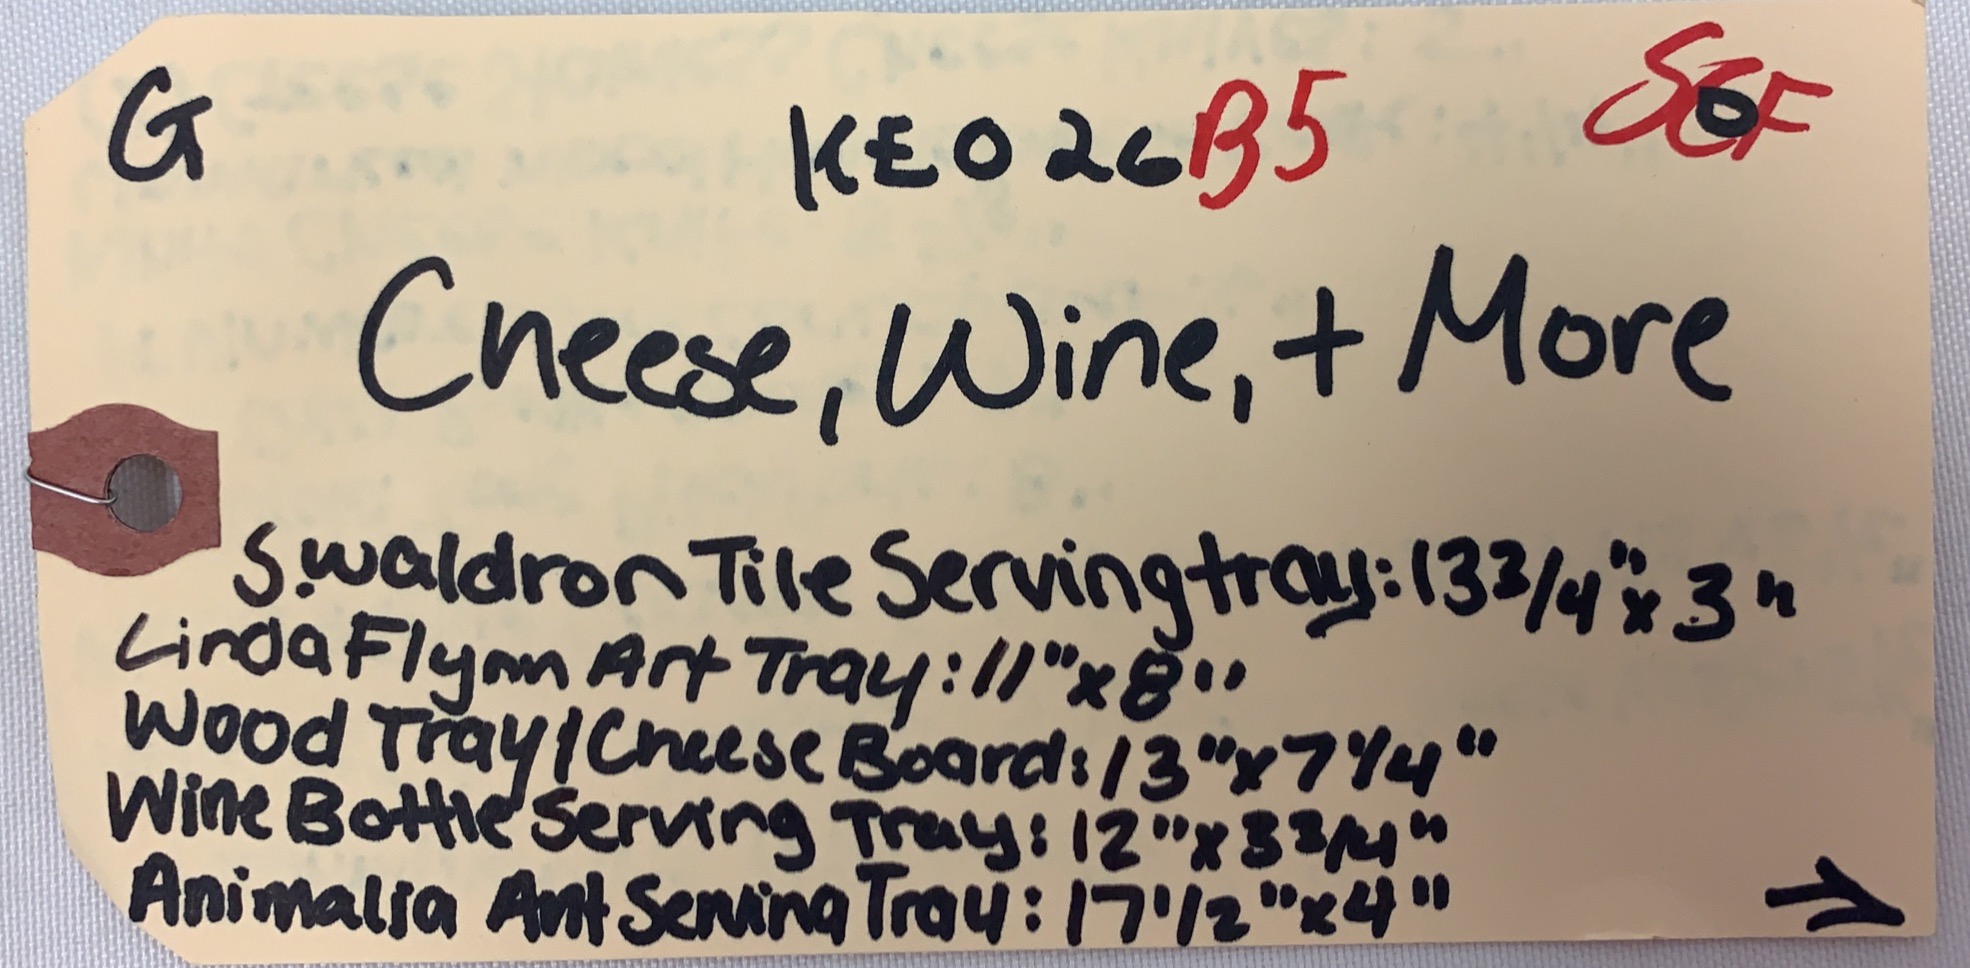 G KE026 B5 SGF
Cheese, Wine, + More
S. Waldron Tile Serving tray: 13 3/4" x 3"
Linda Flynn Art Tray: 11" x 8"
Wood Tray/Cheese Board: 13" x 7 1/4"
Wine Bottle Serving Tray: 12" x 3 3/4"
Animalia Ant Serving Tray: 17 1/2" x 4"
→